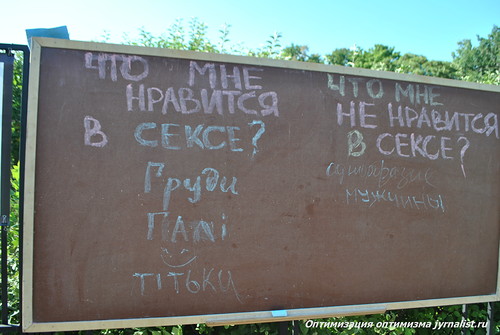 ЧТО МНЕ
НРАВИТСЯ
В СЕКСЕ?
Груди
Палі
тітька
ЧТО МНЕ
НЕ НРАВИТСЯ
В СЕКСЕ?
мужчины
Оптимизация оптимизма jyrnalist.ru